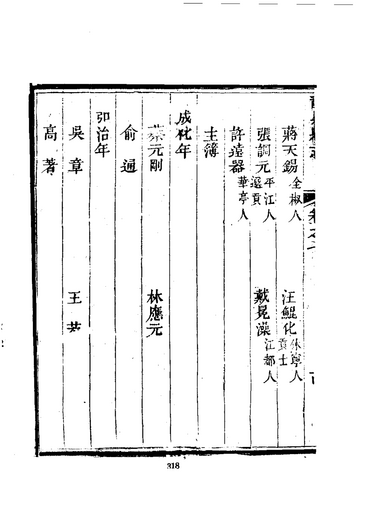 蔣天錫 全椒人 汪鯤化 休寧人 貢士
張調元 平江人 選貢 戴晃藻 江都人
許遠器 華亭人
主簿
成化年
蔡元剛 林應元
俞通
弘治年
吳章 王
高著
318